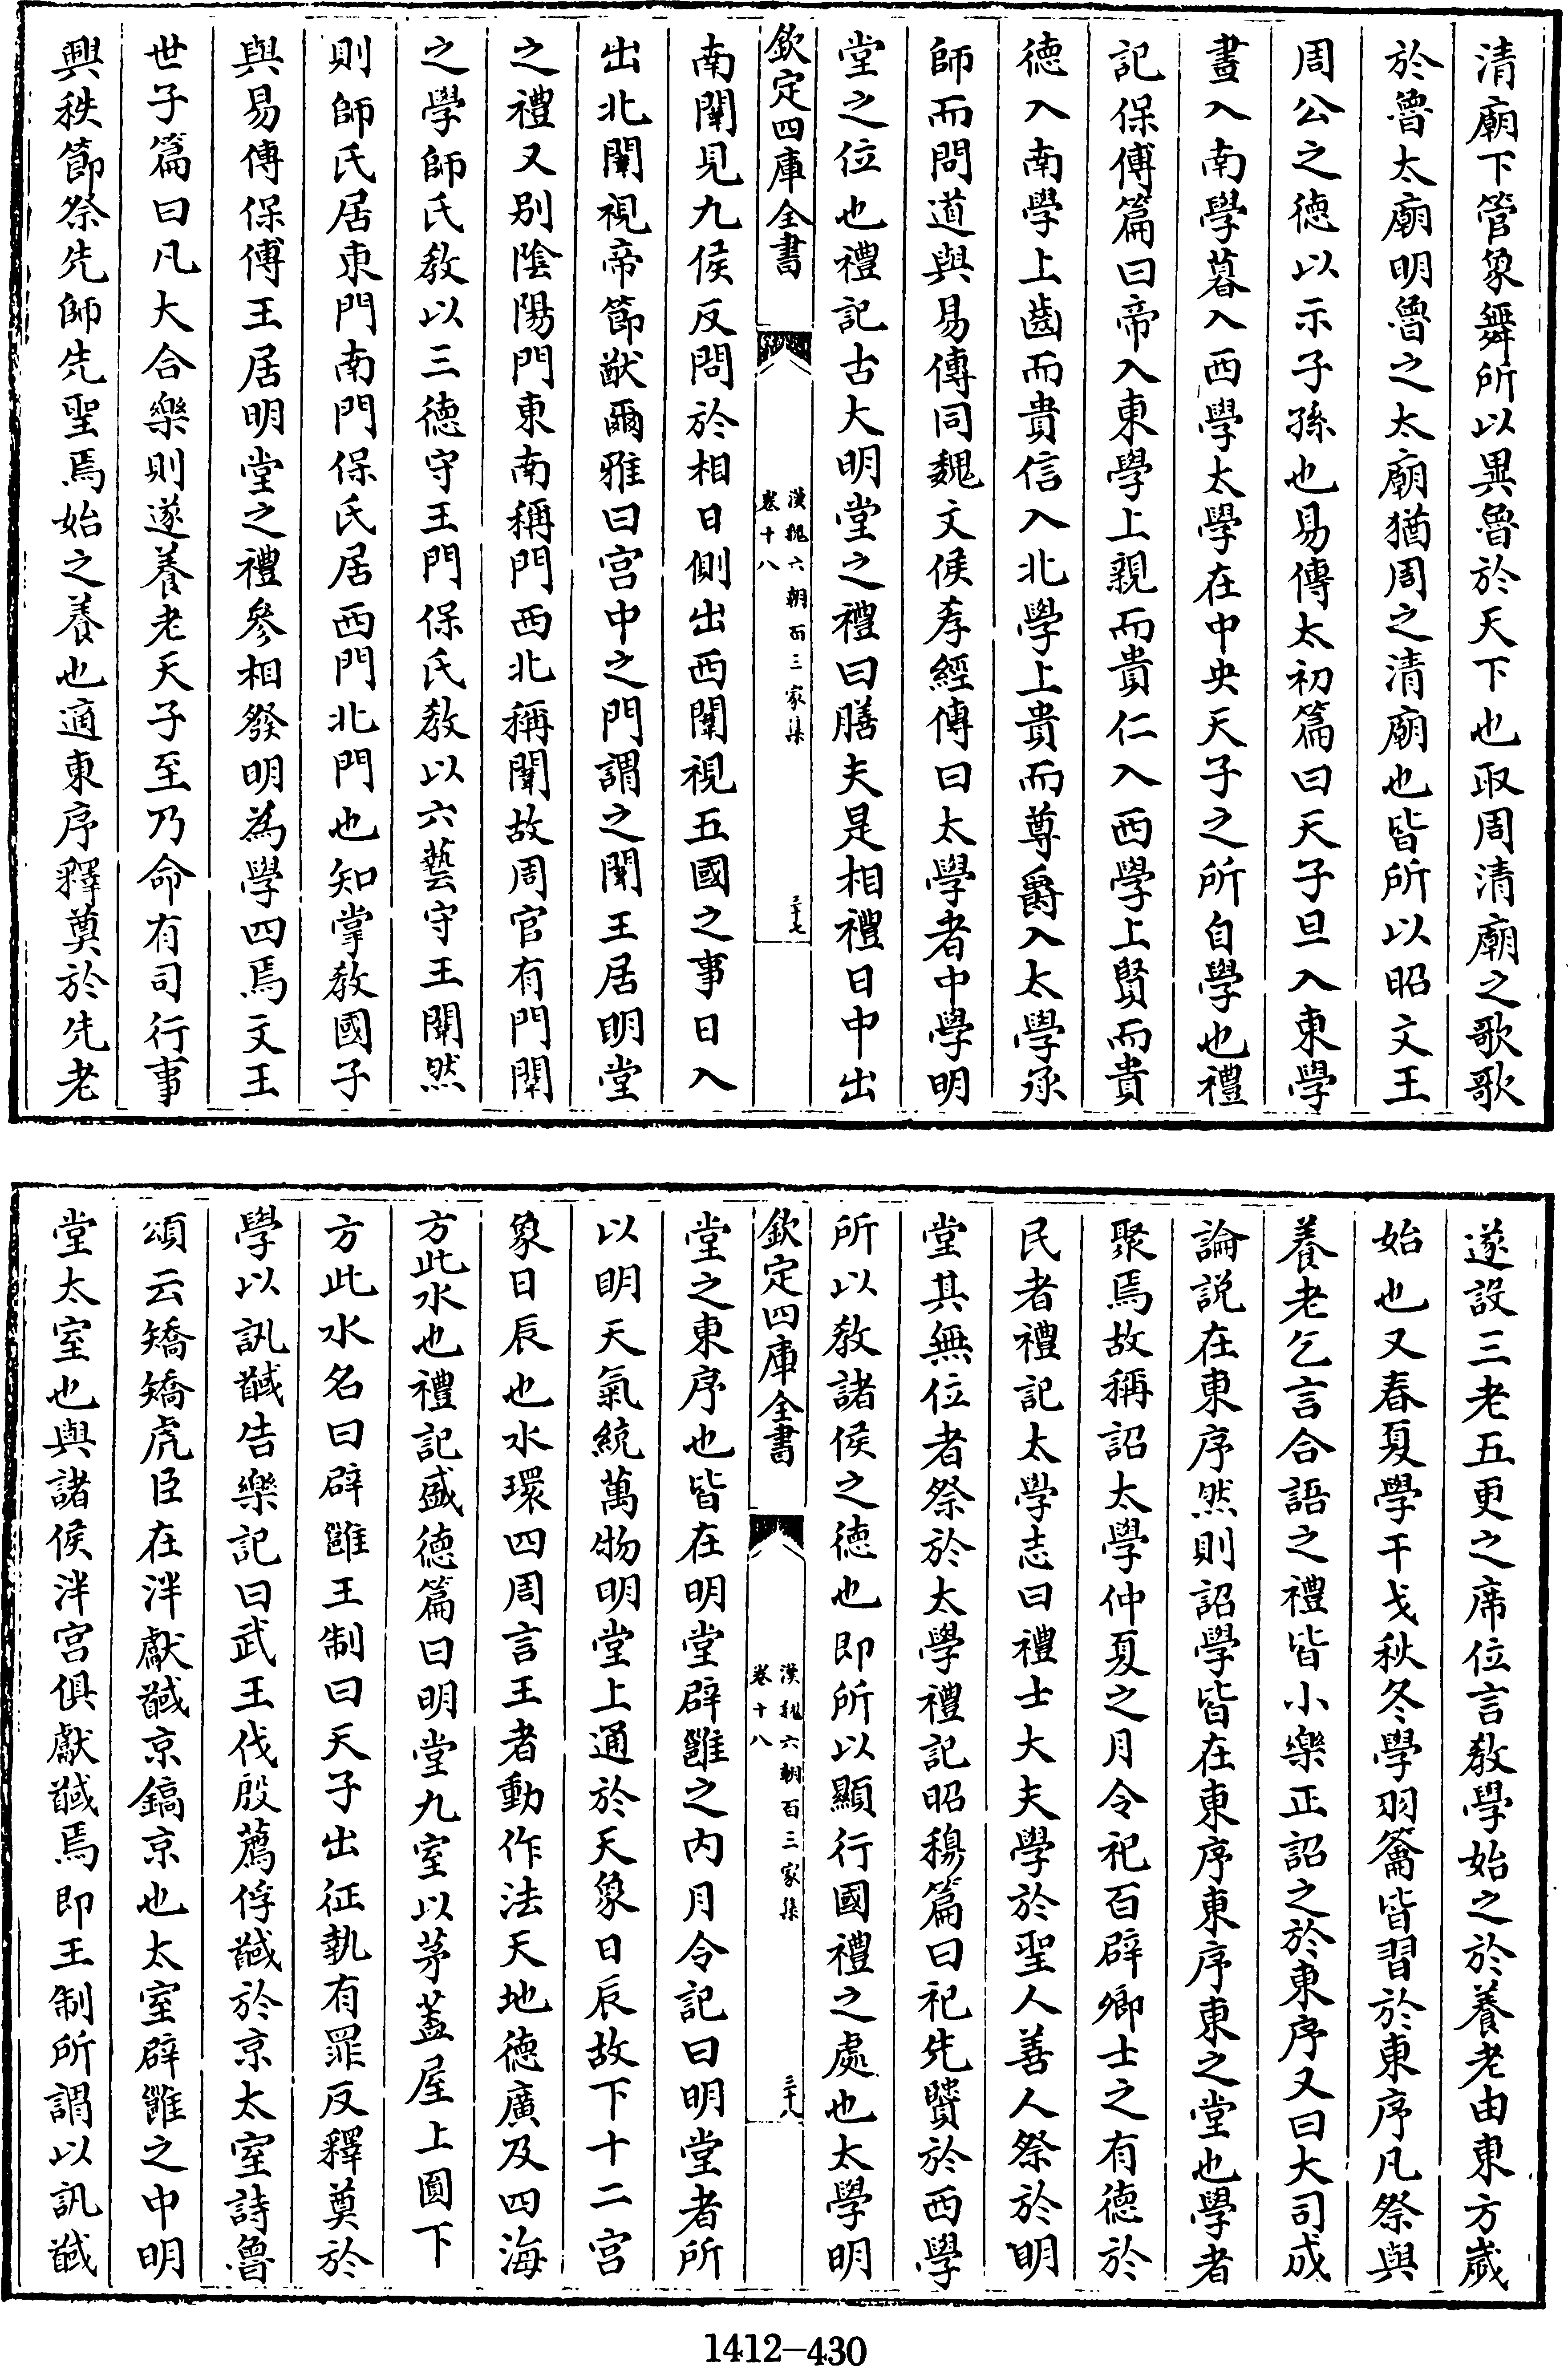 清廟下管象舞所以異魯於天下也取周清廟之歌歌
於魯太廟明魯之太廟猶周之清廟也皆所以昭文王
周公之徳以示子孫也易傳太初篇曰天子旦入東學
晝入南學暮入西學太學在中央天子之所自學也禮
記保傅篇曰帝入東學上親而貴仁入西學上賢而貴
徳入南學上齒而貴信入北學上貴而尊爵入太學承
師而問道與易傳同魏文侯孝經傳曰太學者中學明
堂之位也禮記古大明堂之禮曰膳夫是相禮日中出
欽定四庫全書
漢魏六朝百三家集
卷十八
三十七
南闈見九侯反問於相日側出西闈視五國之事日入
出北闈視帝節猷爾雅曰宫中之門謂之闈王居明堂
之禮又别陰陽門東南稱門西北稱闈故周官有門闈
之學師氏教以三徳守王門保氏教以六藝守王闈然
則師氏居東門南門保氏居西門北門也知掌教國子
與易傳保傅王居明堂之禮參相發明為學四焉文王
世子篇曰凡大合樂則遂養老天子至乃命有司行事
興秩節祭先師先聖焉始之養也適東序釋奠於先老
遂設三老五更之席位言教學始之於養老由東方歲
始也又春夏學干戈秋冬學羽籥皆習於東序凡祭與
養老乞言合語之禮皆小樂正詔之於東序又曰大司成
論説在東序然則詔學皆在東序東序東之堂也學者
聚焉故稱詔太學仲夏之月令祀百辟卿士之有徳於
民者禮記太學志曰禮士大夫學於聖人善人祭於明
堂其無位者祭於太學禮記昭穆篇曰祀先賢於西學
所以教諸侯之徳也即所以顯行國禮之處也太學明
欽定四庫全書
漢魏六朝百三家集
卷十八
三十八
堂之東序也皆在明堂辟雝之内月令記曰明堂者所
以明天氣統萬物明堂上通於天象日辰故下十二宫
象日辰也水環四周言王者動作法天地徳廣及四海
方此水也禮記盛徳篇曰明堂九室以茅葢屋上圓下
方此水名曰辟雝王制曰天子出征執有罪反釋奠於
學以訊馘告樂記曰武王伐殷薦俘馘於京太室詩魯
頌云矯矯虎臣在泮獻馘京鎬京也太室辟雝之中明
堂太室也與諸侯泮宫俱獻馘焉即王制所謂以訊馘
1412—430